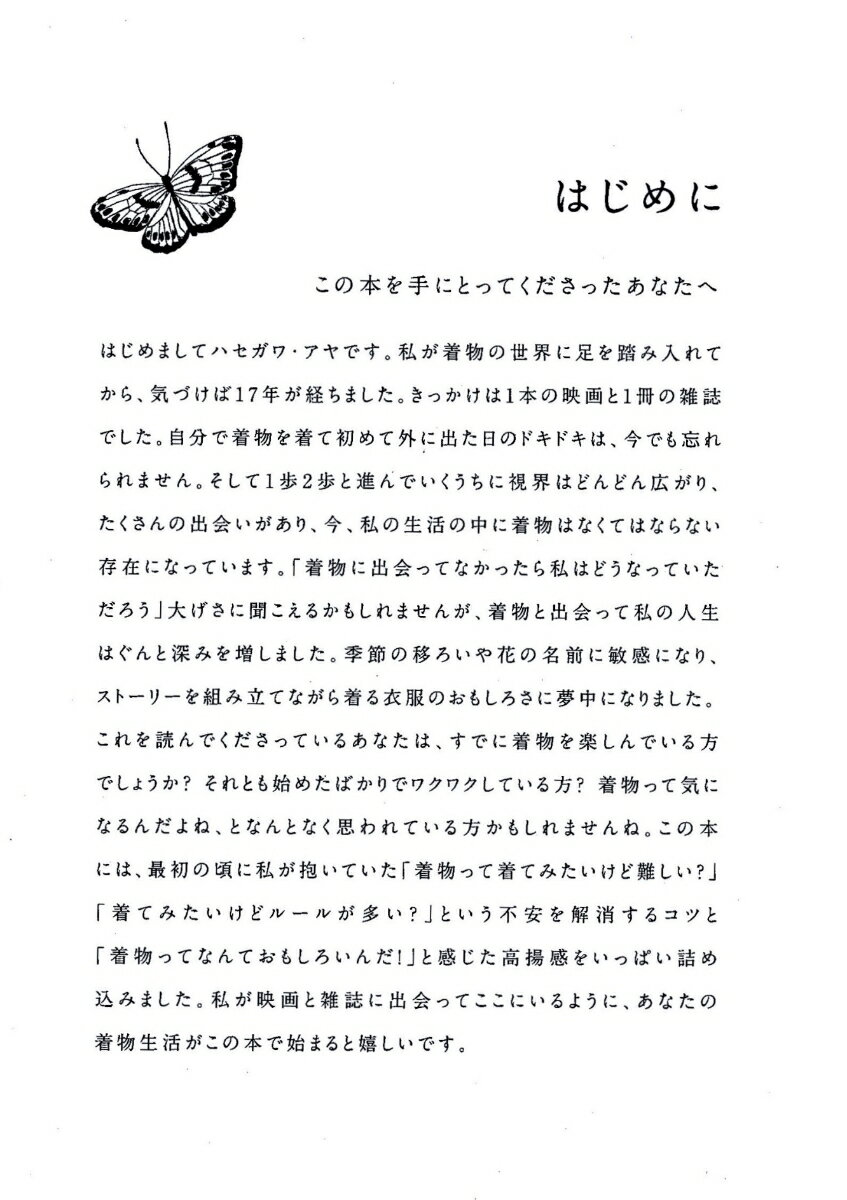 はじめに
この本を手にとってくださったあなたへ
はじめましてハセガワ・アヤです。私が着物の世界に足を踏み入れて
から、気づけば17年が経ちました。きっかけは1本の映画と1冊の雑誌
でした。自分で着物を着て初めて外に出た日のドキドキは、今でも忘れ
られません。そして1歩2歩と進んでいくうちに視界はどんどん広がり、
たくさんの出会いがあり、今、私の生活の中に着物はなくてはならない
存在になっています。「着物に出会ってなかったら私はどうなっていた
だろう」大げさに聞こえるかもしれませんが、着物と出会って私の人生
はぐんと深みを増しました。季節の移ろいや花の名前に敏感になり、
ストーリーを組み立てながら着る衣服のおもしろさに夢中になりました。
これを読んでくださっているあなたは、すでに着物を楽しんでいる方
でしょうか? それとも始めたばかりでワクワクしている方? 着物って気に
なるんだよね、となんとなく思われている方かもしれませんね。この本
には、最初の頃に私が抱いていた「着物って着てみたいけど難しい?」
「着てみたいけどルールが多い?」という不安を解消するコツと
「着物ってなんておもしろいんだ!」と感じた高揚感をいっぱい詰め
込みました。私が映画と雑誌に出会ってここにいるように、あなたの
着物生活がこの本で始まると嬉しいです。